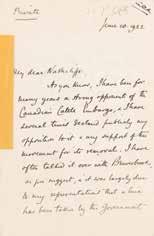 Private
June 20. 1922
My dear Northcliffe
As you know, I have been for
many years a strong opponent of the
Canadian Cattle Embargo, & I have
several times stated publicly my
opposition to it & my support of the
movement for its removal. I have
often talked it over with Beaverbrook,
as you suggest, & it was largely due
to my representations that a line
has been taken by the Government